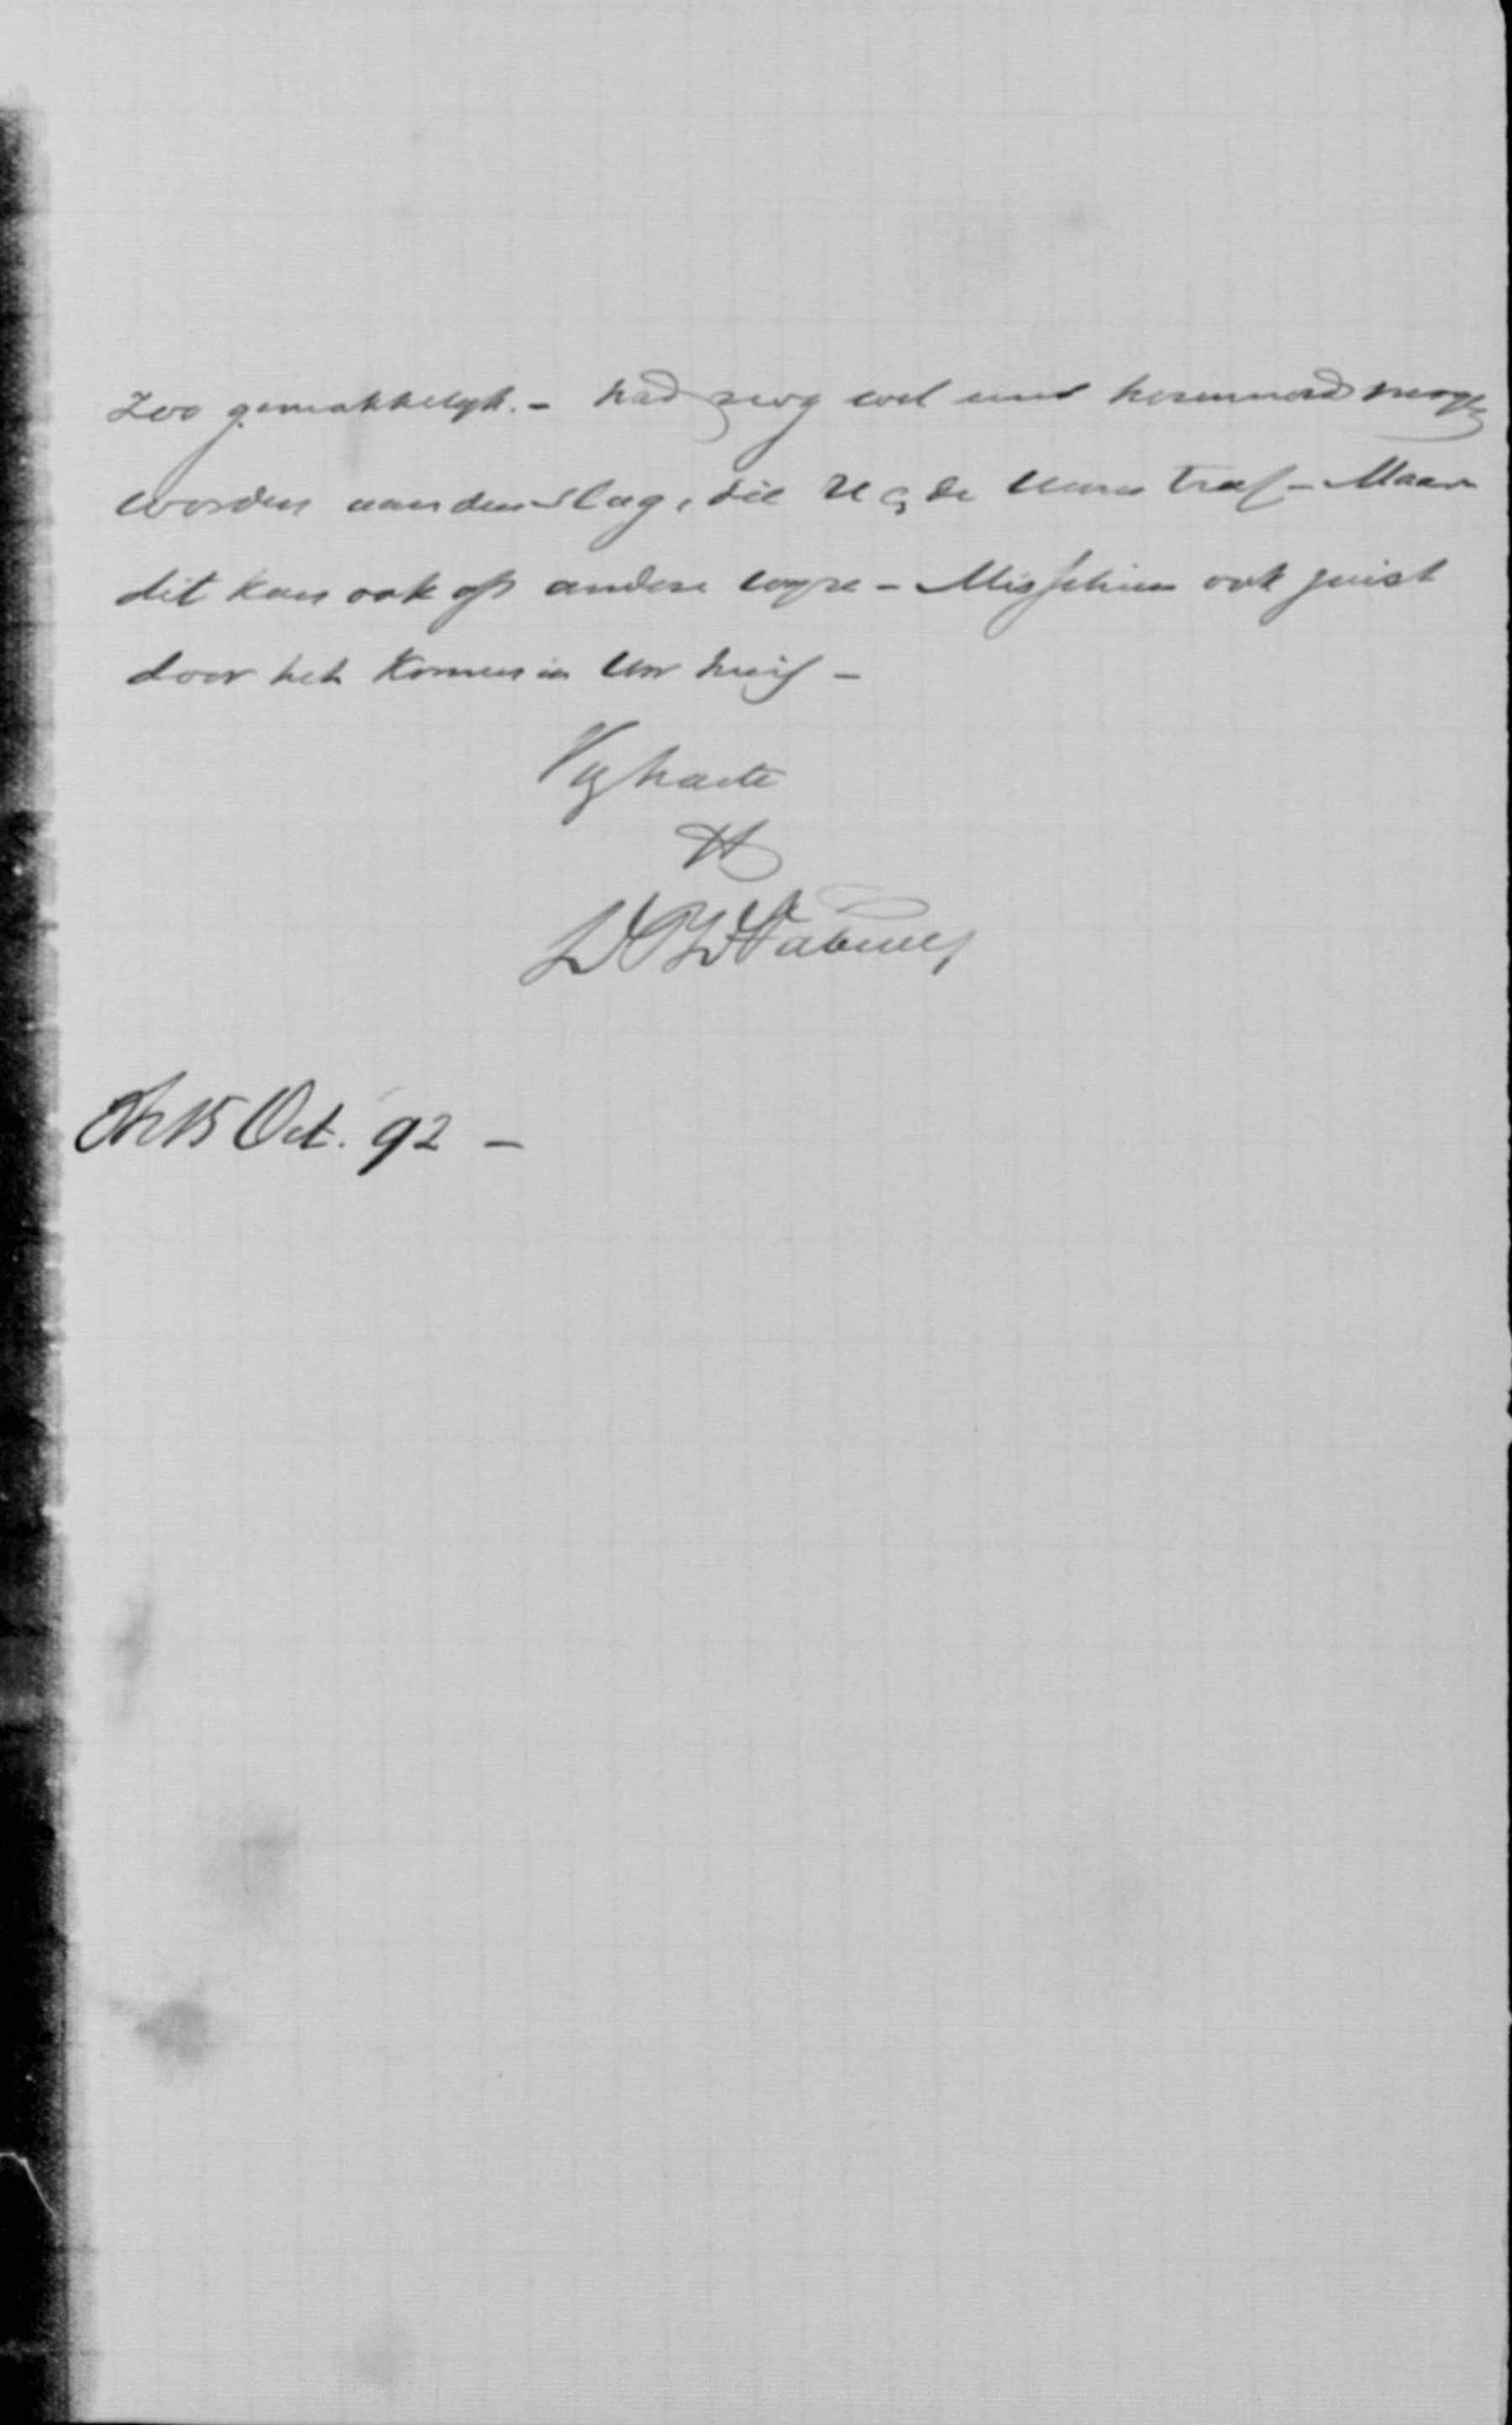 Zoo gemakkelijk. - had nog wel eens herinnerd mogen
worden aan den slag, die U & de Uwen trof - Maar
dit kan ook op andere wijze - Misschien ook juist
door het komen in Uw huis -
Vhachte
15 Oct. 92 -